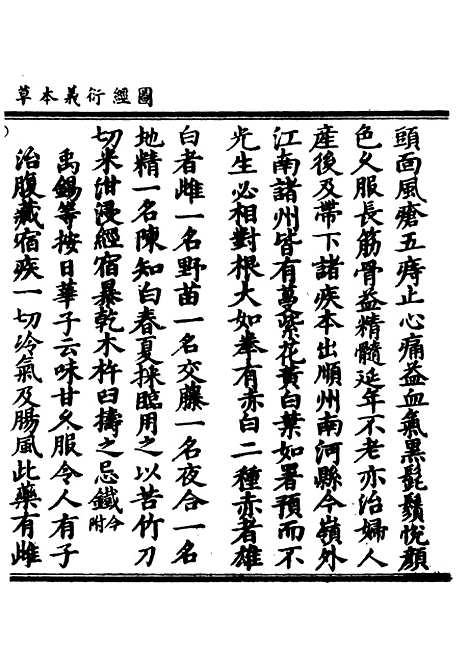 圖經衍義本草
頭面風瘡五痔止心痛益血氣黑髭鬚悅顏
色久服長筋骨益精髓延年不老亦治婦人
產後及帶下諸疾本出順州南河縣今嶺外
江南諸州皆有蔓紫花黃白葉如署預而不
光生必相對根大如拳有赤白二種赤者雄
白者雌一名野苗一名交藤一名夜合一名
地精一名陳知白春夏採臨用之以苦竹刀
切米泔浸經宿暴乾木杵臼擣之忌鐵今附
禹錫等按日華子云味甘久服令人有子
治腹藏宿疾一切冷氣及腸風此藥有雌